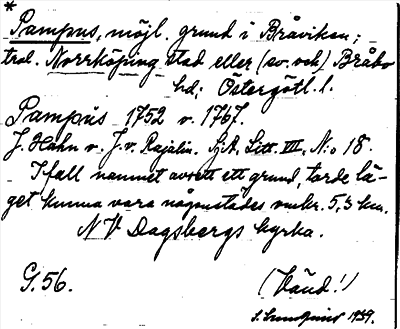 * Pampus, möjl. grund i Bråviken;
trol. Norrköping stad eller (so. och) Bråbo
hd; Östergötl. l.
Pampus 1752 v. 1767.
J. Hahn v. J. v. Rajalin. Litt. VIII, N:o 18.
Ifall namnet avsett ett grund, torde lä-
get kunna vara någonstädes omkr. 5,3 km.
NV Dagsbergs kyrka.
G. 56. (Vänd!)
1939.